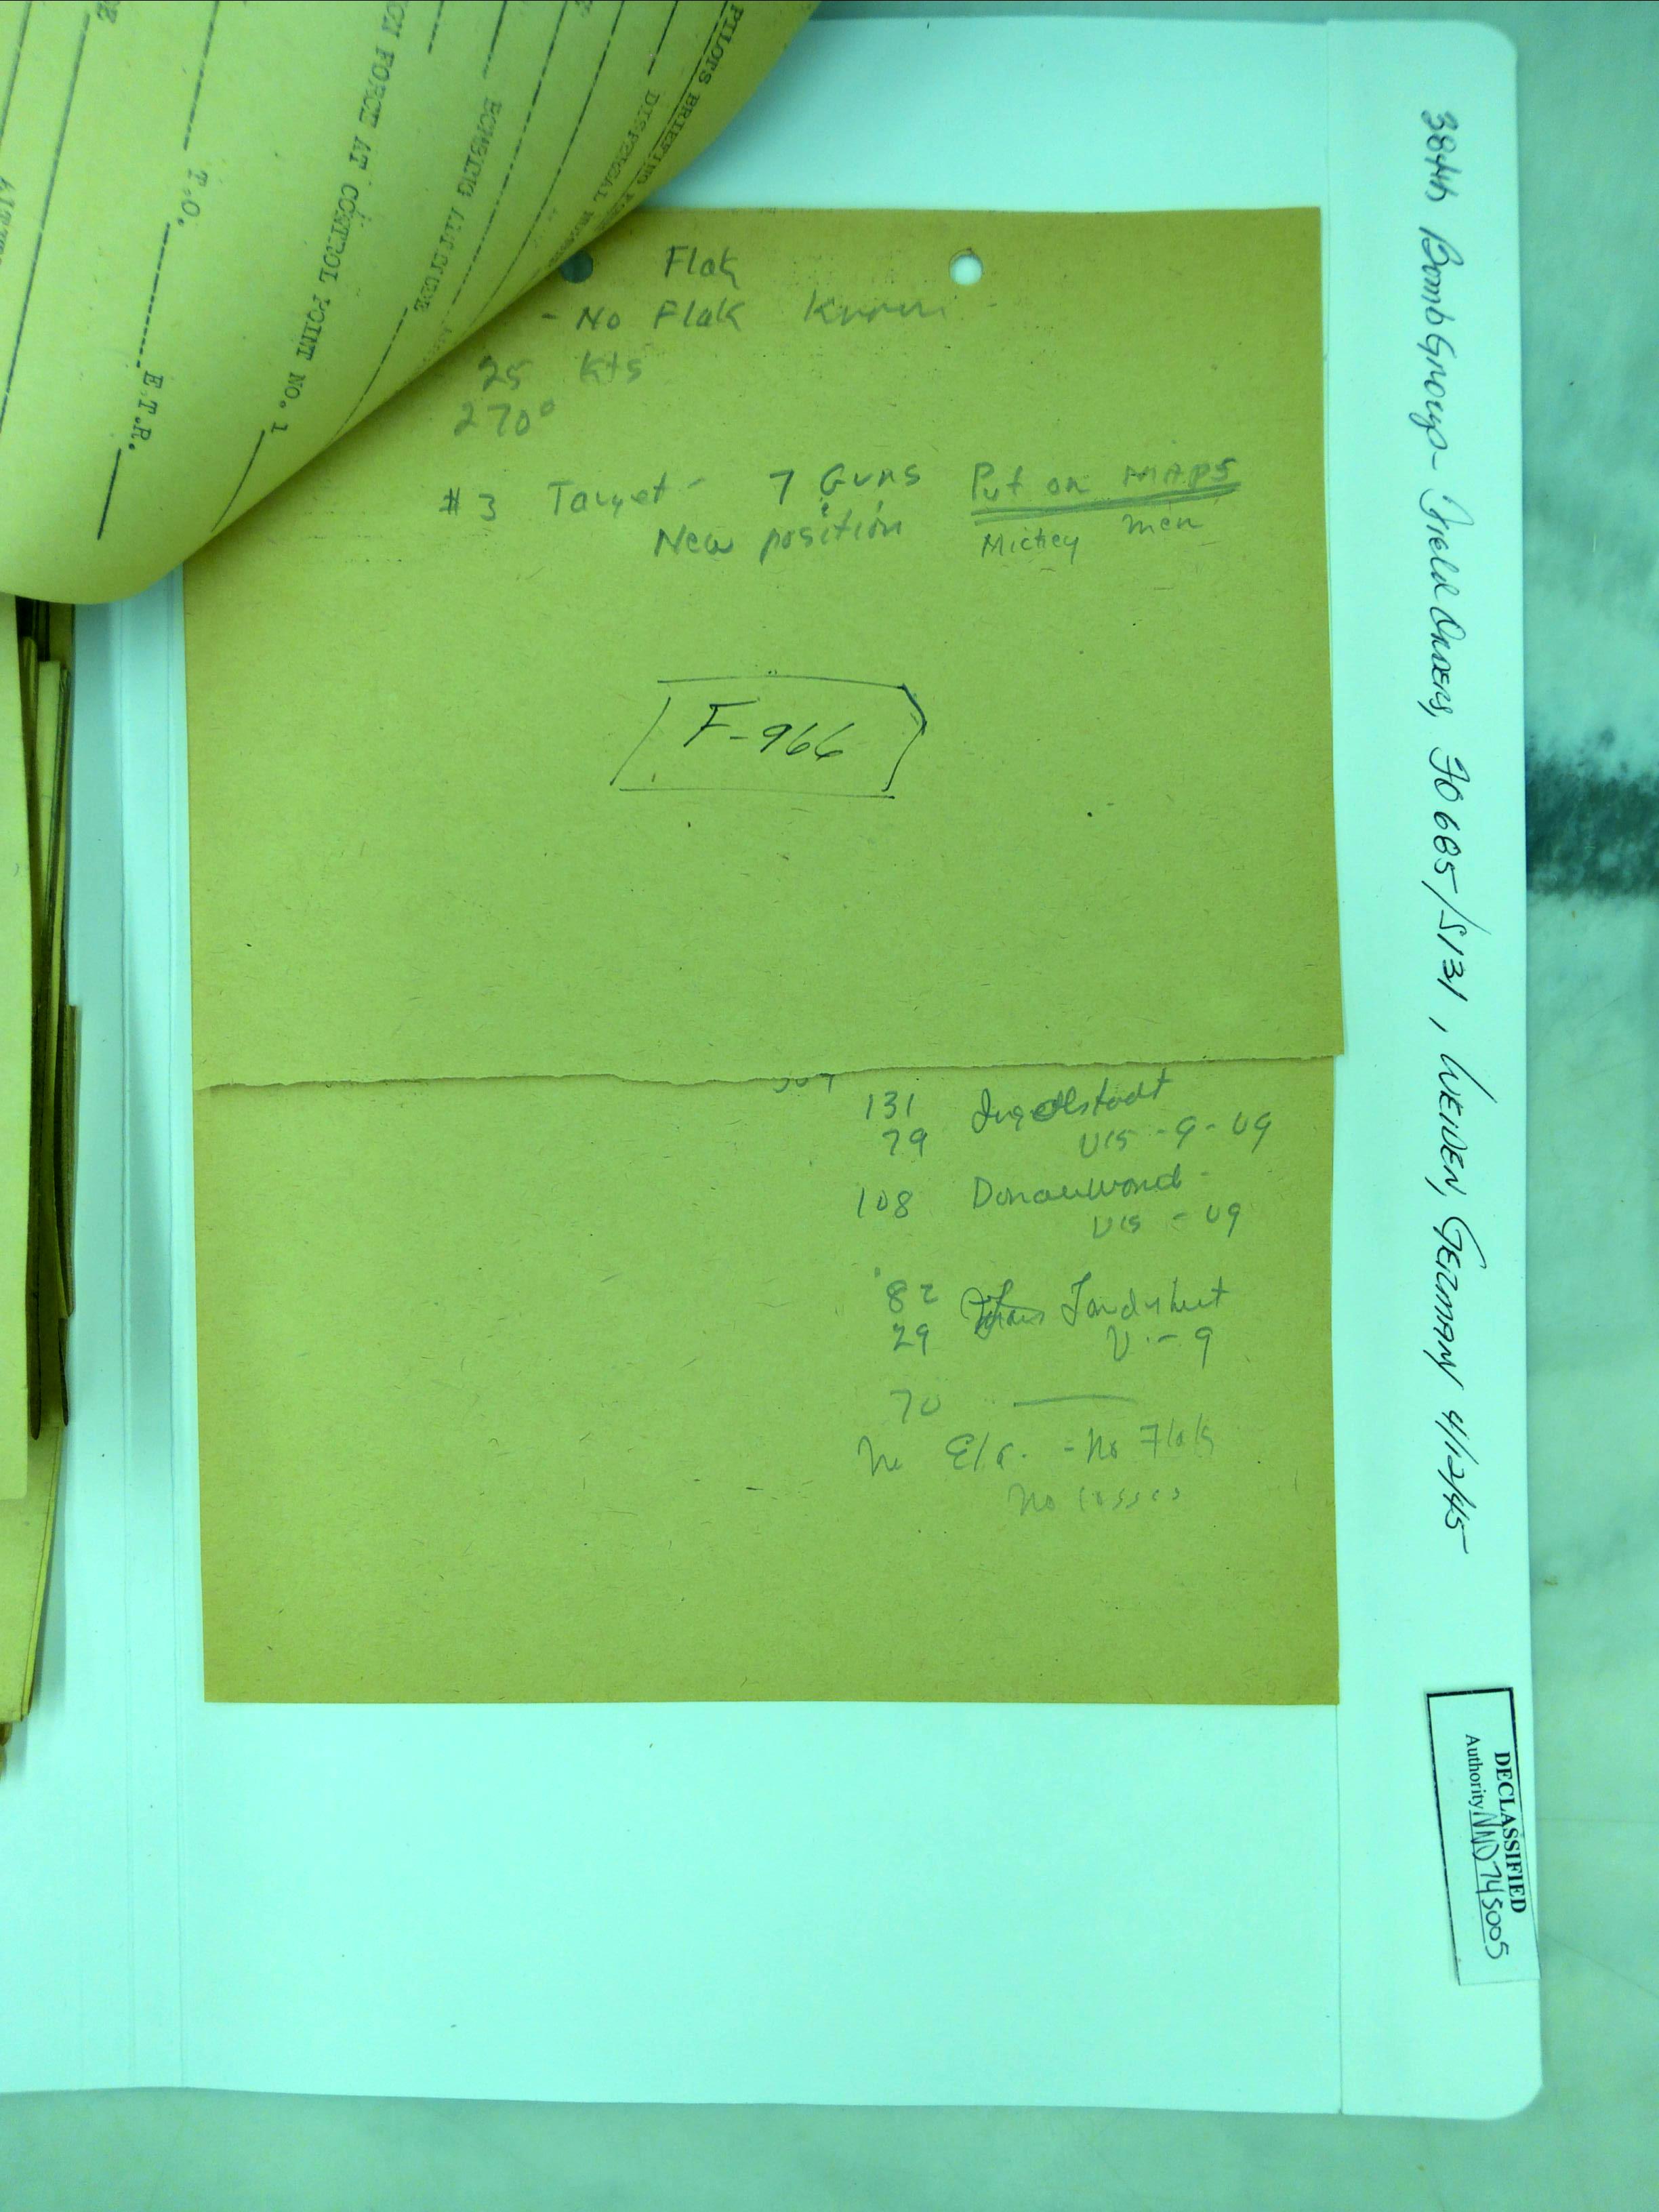 PILOTS BRIEFING
DISPERSAL
BOMBING ALTITUDE
ON FORCE AT CONTROL POINT NO. 1
T.O.
E.T.R.
Flak
- No Flak Known -
25 Kts
270°
#3 Target - 7 Guns Put on MAPS
New position Mickey Men
F-966
131 Ingollstadt
79 vis - g - vg
108 Donauworth -
vis - vg
82 Landshut
29 V. - g
70
No E/a. - No Flak
No losses
384th Bomb Group - Field Orders, FO 685/S131, WEIDEN, GERMANY 4/12/45
DECLASSIFIED
Authority NND 745005